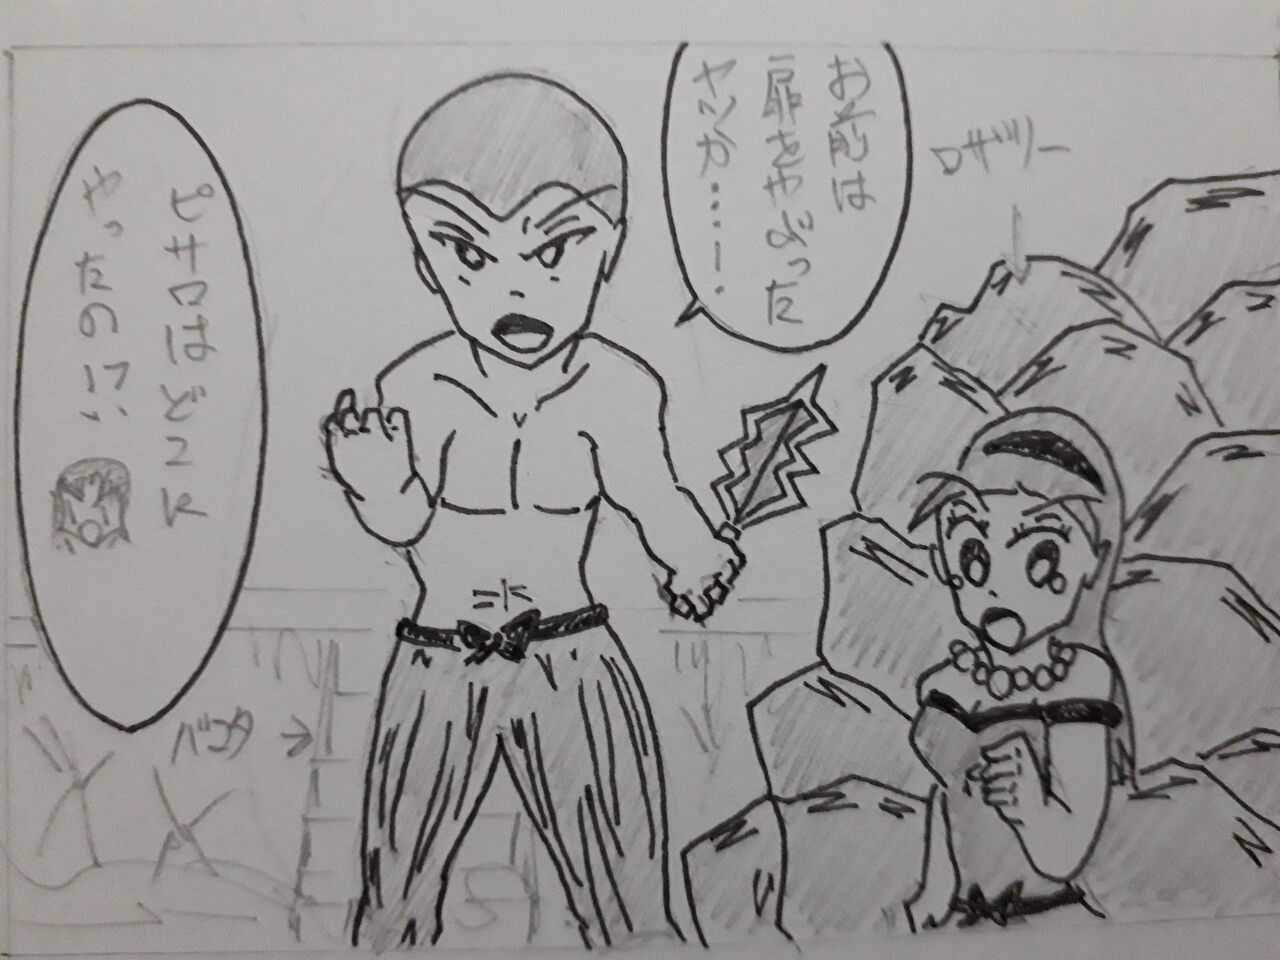 お前は
扉をやぶった
ヤツか…!
ロザリー
ピサロはどこに
やったのけい
バコタ